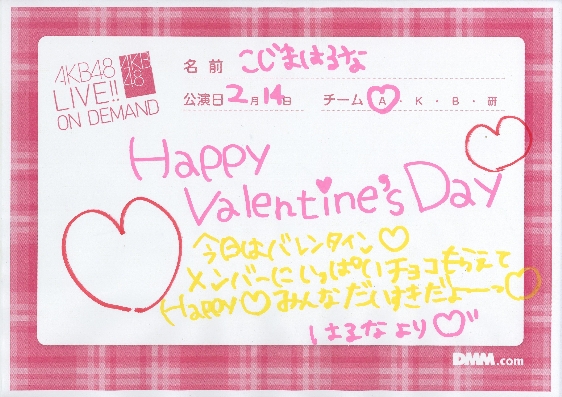 AKB48
LIVE!!
ON DEMAND
AKB
48
名前 こじまはるな
公演日 2月14日 チーム A・K・B・研
Happy
Valentine's Day
今日はバレンタイン♡
メンバーにいっぱいチョコもらえて
Happy♡みんなだいすきだよーっ♡
はるなより♡
DMM.com